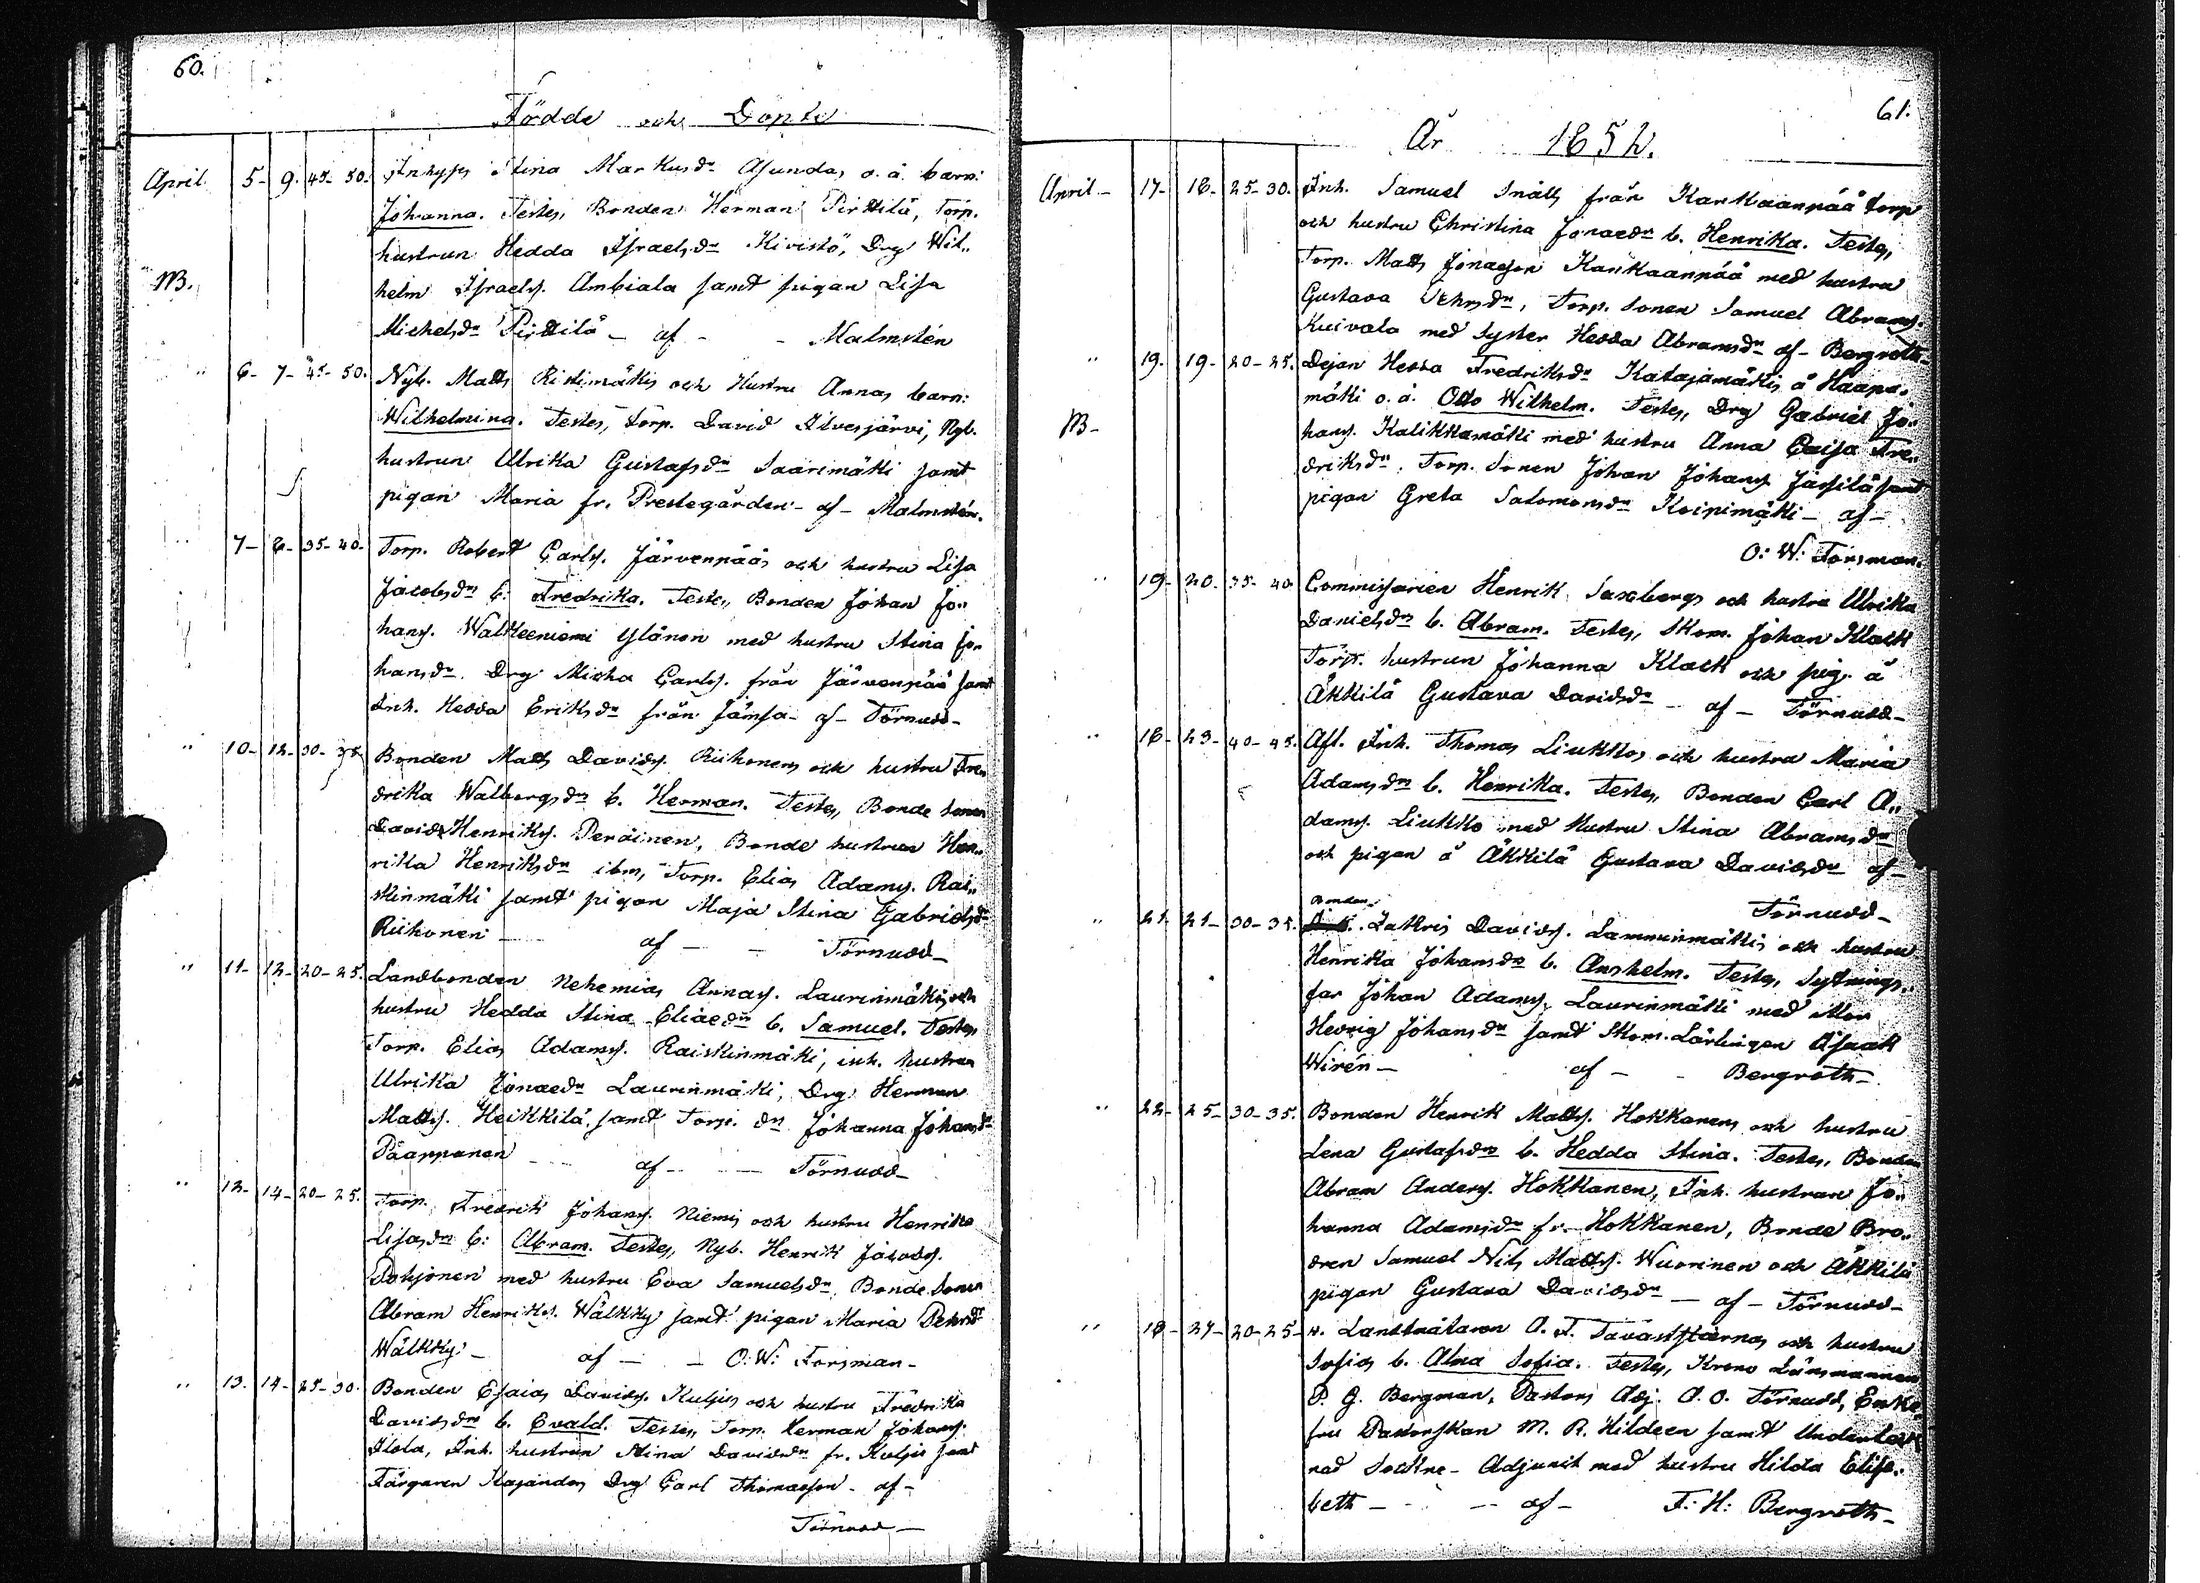 60.
Födde och Döpte
April 5- 9. 45- 50. Inhyses Stina Markusdr Asundas o. ä. barn:
Johanna. Testes, Bonden Herman Pirttilä, Torp.
hustrun Hedda Israelsdr Kivistö, Drg Wil„
M. helm Israels. Ambiala samt pigan Lisa
Michelsdr Pirttilä - af - - Malmstén
" 6- 7- 45- 50. Nyb. Matts Ristimäkis och Hustru Annas barn:
Wilhelmina. Testes, Torp. David Ilvesjärvi, Nyb.
hustrun Ulrika Gustafsdr Saarimäki samt
pigan Maria fr. Prestegården - af - Malmstén.
" 7- 8- 35- 40- Torp. Robert Carls. Järvenpääs och hustru Lisa
Jacobsdrs b: Fredrika. Testes, Bonden Johan Jo„
hans. Walkeeniemi Ylänen med hustru Stina Jo„
hansdr. Drg Micha Carls. från Järvenpää samt
Inh. Hedda Eriksdr från Jämsä - af - Törnudd-
" 10- 12- 30- 35. Bonden Matts Davids. Riihonens och hustru Fre„
drika Walborgsdrs b. Herman. Testes, Bonde sonen
David Henriks. Peräinen, Bonde hustrun Hen„
rika Henriksdr ibm, Torp. Elias Adams. Rai„
skinmäki samt pigan Maja Stina Gabrielsdr
Riihonen - af - - Törnudd-
" 11- 12- 20- 25. Landbonden Nehemias Annas. Laurinmäkis och
hustru Hedda Stina Eliaedrs b. Samuel. Testes,
Torp. Elias Adams. Raiskinmäki, inh. hustrun
Ulrika Jonaedr Laurinmäki, Drg Herman
Matts. Heikkilä, samt Torp. dr Johanna Johansdr
Pääppönen - af - - Törnudd-
" 12- 14- 20- 25. Torp. Fredrik Johans. Niemis och hustru Henrika
Lisasdrs b: Abram. Testes, Nyb. Henrik Jacobs.
Pohjonen med hustru Eva Samuelsdr, Bonde sonen
Abram Henriks. Wälkky samt pigan Maria
Wälkky - af - - O: W: Forsman-
" 13. 14- 25- 30. Bonden Esaias Davids. Kuljus och hustru Fredrika
Davidsdrs b. Evald. Testes, Torp. Herman Johans.
Ilola, Inh. hustrun Stina Davidsdr fr. Kuljus samt
Färgaren Kajanders Drg Carl Thomasson - af -
Törnudd-
61.
År 1852.
April- 17- 18- 25- 30. Inh. Samuel Snälls från Kankaanpää torp
och hustru Christina Jonaedrs b. Henrika. Testes,
Torp. Matts Jonasson Kankaanpää med hustru
Gustava, Torp. sonen Samuel Abrams.
Kuivala med syster Hedda Abramsdr af - Bergroth-
" 19. 19- 20- 25. Dejan Hedda Fredriksdr Katajamäkis å Haapa„
mäki o. ä. Otto Wilhelm. Testes, Drg Gabriel Jo„
M- hans. Kalikkamäki med hustru Anna Caisa Fre„
driksdr, Torp. Sonen Johan Johans. Jässilä samt
pigan Greta Salomonsdr Koinimäki - af -
O: W: Forsman.
" 19- 20- 35- 40 Commissarien Henrik Saxbergs och hustru Ulrika
Danielsdrs b. Abram. Testes, Skom. Johan Klack
Torp. hustrun Johanna Klack och pig. å
Äkkilä Gustava Davidsdr - af - Törnudd-
" 18- 23- 40- 45. Afl. Inh. Thomas Liukkos och hustru Maria
Adamsdrs b. Henrika. Testes, Bonden Carl A„
dams. Liukko med Hustru Stina Abramsdr
och pigan å Äkkilä Gustava Davidsdr af -
Törnudd-
Bonden
" 21. 21- 30- 35. Zakris Davids. Lamminmäkis och hustru
Henrika Johansdrs b. Anshelm. Testes, Sytnings„
far Johan Adams. Laurinmäki med Mor
Hedvig Johansdr samt Skom. Lärlingen Isaak
Wirén - af - - Bergroth-
" 22- 25- 30- 35. Bonden Henrik Matts. Hokkanens och hustru
Lena Gustafsdrs b. Hedda Stina. Testes, Bonden
Abram Anders. Hokkanen, Inh. hustrun Jo„
hanna Adamsdr fr. Hokkanen, Bonde Bro„
dren Samuel Nils Matts. Wuorinen och Äkkilä
pigan Gustava Davidsdr - af - Törnudd-
" 18- 27- 20- 25- v. Landtmätaren A. F. Tavaststjernas och hustru
Sofias b. Alma Sofia. Testes, Krono Länsmannen
P. G. Bergman, Pastors Adj. A. O. Törnudd, Enke„
fru Pastorskan M. R. Hildeen samt Underteck„
nad Sockne-Adjunct med hustru Hilda Elisa„
beth - - - af - F: H: Bergroth-